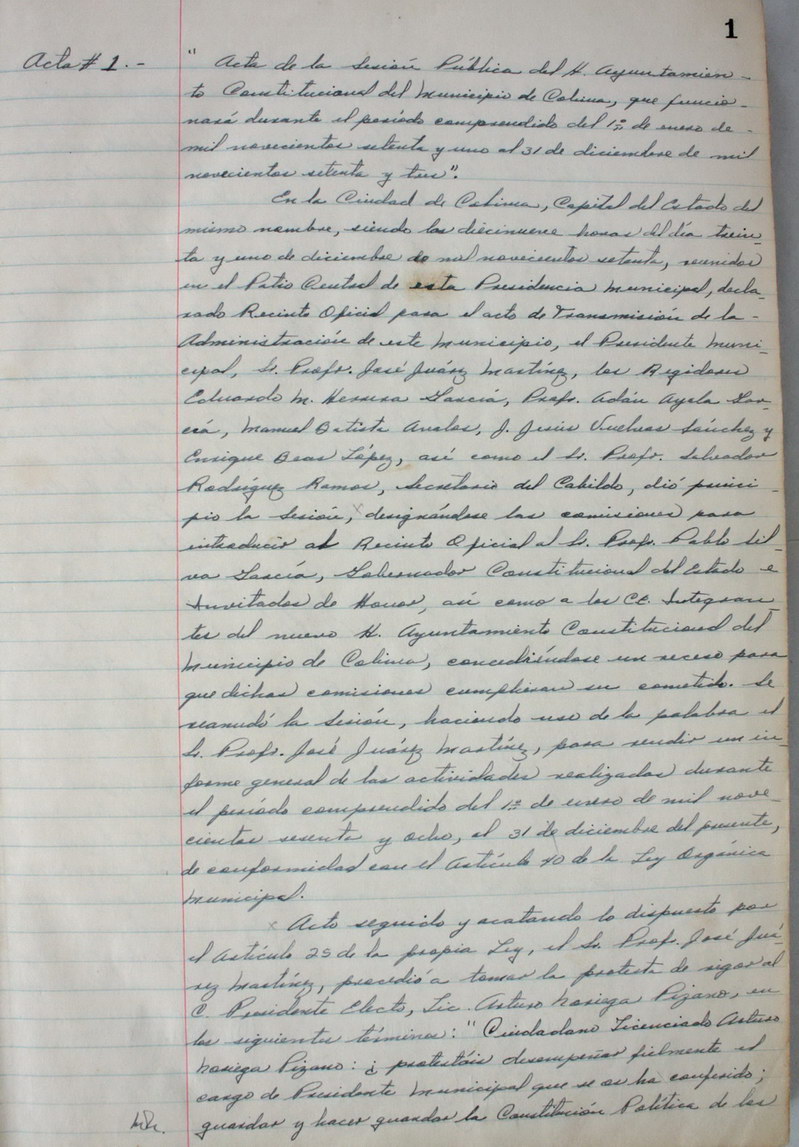 1
Acta # 1.-
" Acta de la Sesión Pública del H. Ayuntamien-
to Constitucional del Municipio de Colima, que funcio-
nará durante el período comprendido del 1o. de enero de
mil novecientos setenta y uno al 31 de diciembre de mil
novecientos setenta y tres".
En la Ciudad de Colima, Capital del Estado del
mismo nombre, siendo las diecinueve horas del día trein-
ta y uno de diciembre de mil novecientos setenta, reunidos
en el Patio Central de esta Presidencia Municipal, decla-
rado Recinto Oficial para el acto de Transmisión de la -
Administración de este Municipio, el Presidente Muni-
cipal, Sr. Profr. José Juárez Martínez, los Regidores
Eduardo M. Herrera García, Profr. Adán Ayala Gar-
cía, Manuel Batista Avalos, J. Jesús Vuelvas Sánchez y
Enrique Beas López, así como el Sr. Profr. Salvador
Rodríguez Ramos, Secretario del Cabildo, dió princi-
pio la Sesión, designándose las comisiones para
introducir al Recinto Oficial al Sr. Profr. Pablo Sil-
va García, Gobernador Constitucional del Estado e
Invitados de Honor, así como a los CC. Integran-
tes del nuevo H. Ayuntamiento Constitucional del
Municipio de Colima, concediéndose un receso para
que dichas comisiones cumplieran su cometido. Se
reanudó la Sesión, haciendo uso de la palabra el
Sr. Profr. José Juárez Martínez, para rendir un in-
forme general de las actividades realizadas durante
el período comprendido del 1o. de enero de mil nove-
cientos sesenta y ocho, al 31 de diciembre del presente,
de conformidad con el Artículo 40 de la Ley Orgánica
Municipal.
Acto seguido y acatando lo dispuesto por
el Artículo 25 de la propia Ley, el Sr. Profr. José Juá-
rez Martínez, procedió a tomar la protesta de rigor al
C. Presidente Electo, Lic. Arturo Noriega Pizano, en
los siguientes términos: "Ciudadano Licenciado Arturo
Noriega Pizano: ¿ protestáis desempeñar fielmente el
cargo de Presidente Municipal que se os ha conferido;
guardar y hacer guardar la Constitución Política de los